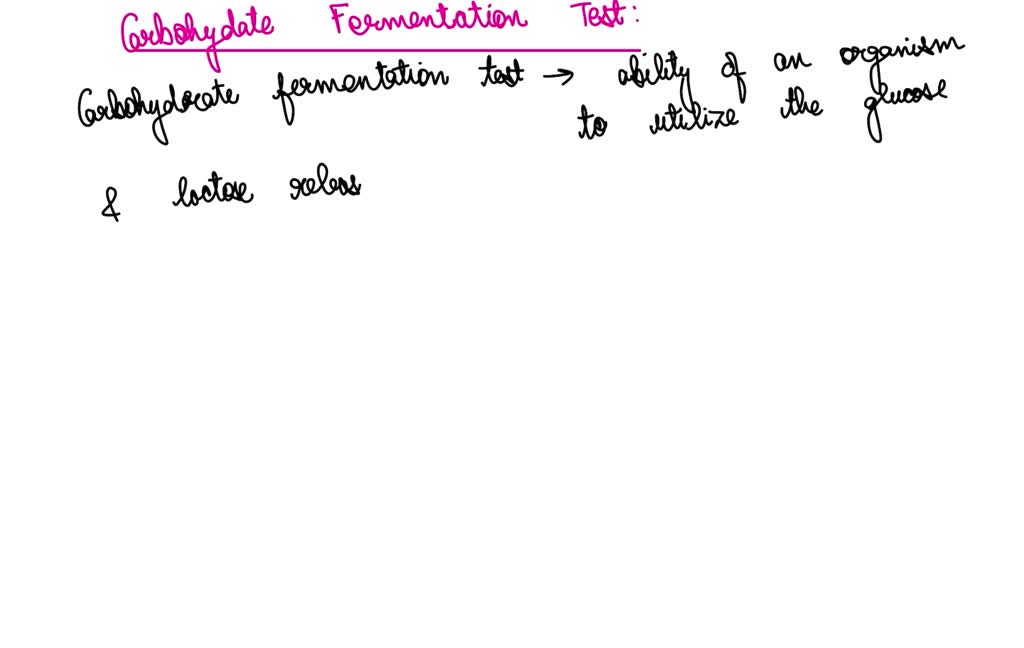 Carbohydate Fermentation Test:
Carbohydrate fermentation test → ability of an organism
to utilize the glucose
& lactose releas